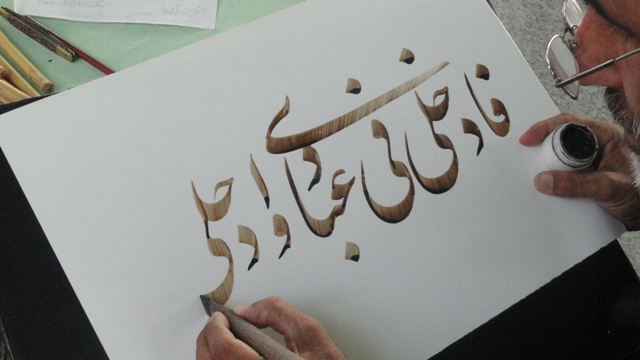 فادخلی فی عبادی وادخلی